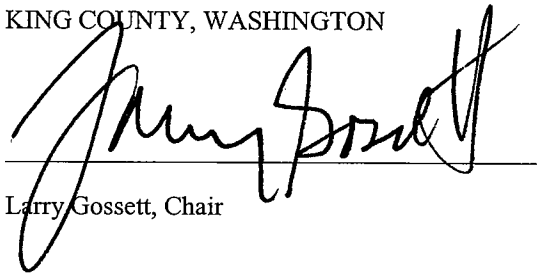 KING COUNTY, WASHINGTON
Larry Gossett
Larry Gossett, Chair